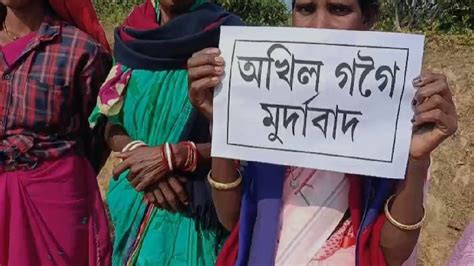 অখিল গগৈ
মুৰ্দাবাদ